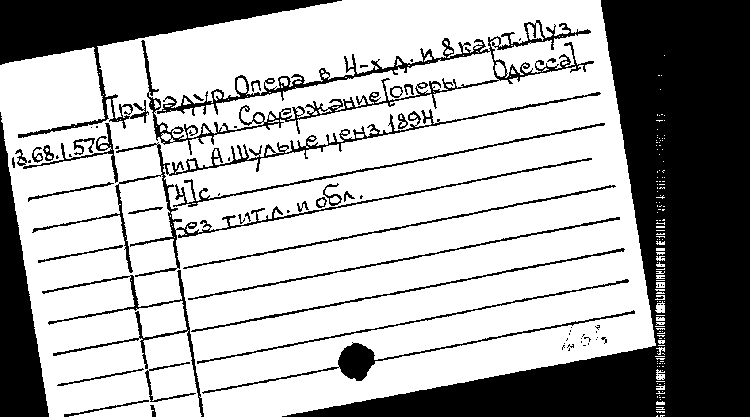 Трубадур. Опера в 4-х д. и 8 карт. Муз.
Верди. Содержание [оперы. Одесса],
13.68.1.576. тип. А. Шульце, ценз. 1894.
[4] с.
Без тит. л. и обл.